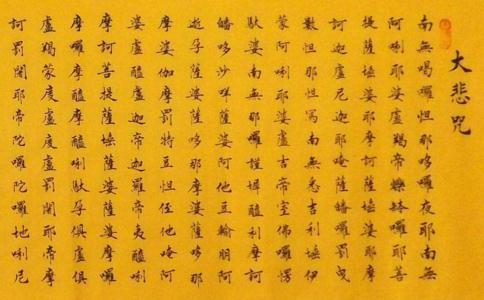 大悲咒
南無喝囉怛那哆囉夜耶南無
阿唎耶婆盧羯帝爍缽囉耶菩
提薩埵婆耶摩訶薩埵婆耶摩
訶迦盧尼迦耶唵薩皤囉罰曳
數怛那怛寫南無悉吉利埵伊
蒙阿唎耶婆盧吉帝室佛囉愣
馱婆南無那囉謹墀醯利摩訶
皤哆沙咩薩婆阿他豆輸朋阿
逝孕薩婆薩哆那摩婆薩哆那
摩婆伽摩罰特豆怛侄他唵阿
婆盧醯盧迦帝迦羅帝夷醯唎
摩訶菩提薩埵薩婆薩婆摩囉
摩囉摩醯摩醯唎馱孕俱盧俱
盧羯蒙度盧度盧罰闍耶帝摩
訶罰闍耶帝陀囉陀囉地唎尼